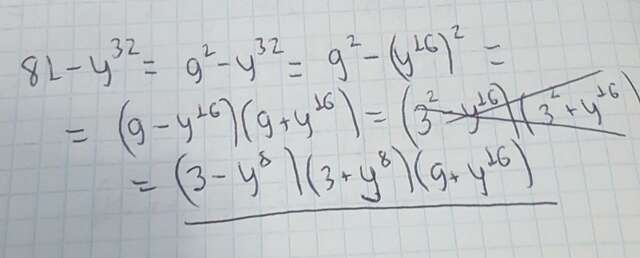 81 - y³² = 9² - y³² = 9² - (y¹⁶)² =
= (9 - y¹⁶)(9 + y¹⁶) = (3² - y¹⁶)(3² + y¹⁶)
= (3 - y⁸)(3 + y⁸)(9 + y¹⁶)